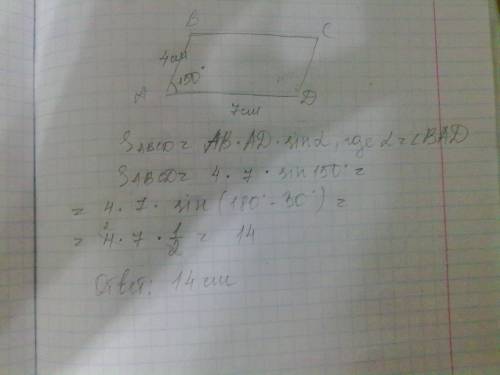 B C
4см
150°
A D
7см
SABCD = AB · AD · sin α, где α = ∠BAD
SABCD = 4 · 7 · sin 150° =
= 4 · 7 · sin (180° - 30°) =
= 4 2 · 7 · 1/2 = 14
Ответ: 14 см